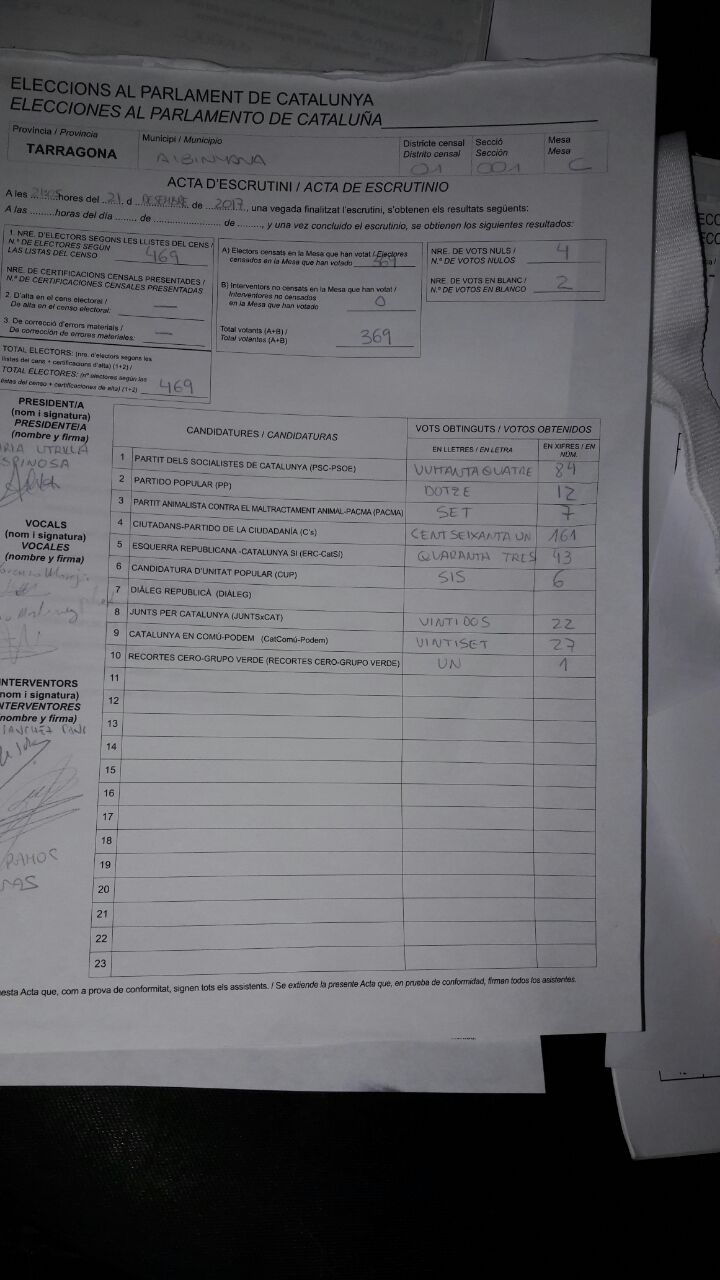 ELECCIONS AL PARLAMENT DE CATALUNYA
ELECCIONES AL PARLAMENTO DE CATALUÑA
Província / Provincia
TARRAGONA
Municipi / Municipio
ALBINYANA
Districte censal
Distrito censal
01
Secció
Sección
001
Mesa
Mesa
C
ACTA D'ESCRUTINI / ACTA DE ESCRUTINIO
A les 21:05 hores del 21 d DESEMBRE de 2017, una vegada finalitzat l'escrutini, s'obtenen els resultats següents:
A las .........horas del día ....... de .................... de ........, y una vez concluido el escrutinio, se obtienen los siguientes resultados:
1. NRE. D'ELECTORS SEGONS LES LLISTES DEL CENS /
N.º DE ELECTORES SEGÚN
LAS LISTAS DEL CENSO 469
NRE. DE CERTIFICACIONS CENSALS PRESENTADES /
N.º DE CERTIFICACIONES CENSALES PRESENTADAS
2. D'alta en el cens electoral /
De alta en el censo electoral: —
3. De correcció d'errors materials /
De corrección de errores materiales: —
TOTAL ELECTORS: (nre. d'electors segons les
llistes del cens + certificacions d'alta) (1+2) /
TOTAL ELECTORES: (nº electores según las
listas del censo + certificaciones de alta) (1+2) 469
A) Electors censats en la Mesa que han votat / Electores
censados en la Mesa que han votado 369
B) Interventors no censats en la Mesa que han votat /
Interventores no censados
en la Mesa que han votado 0
Total votants (A+B) /
Total votantes (A+B) 369
NRE. DE VOTS NULS /
N.º DE VOTOS NULOS 4
NRE. DE VOTS EN BLANC /
N.º DE VOTOS EN BLANCO 2
PRESIDENT/A
(nom i signatura)
PRESIDENTE/A
(nombre y firma)
ESPINOSA
VOCALS
(nom i signatura)
VOCALES
(nombre y firma)
INTERVENTORS
(nom i signatura)
INTERVENTORES
(nombre y firma)
SANCHEZ
RAMOS
CANDIDATURES / CANDIDATURAS
VOTS OBTINGUTS / VOTOS OBTENIDOS
EN LLETRES / EN LETRA
EN XIFRES / EN NÚM.
1 PARTIT DELS SOCIALISTES DE CATALUNYA (PSC-PSOE) VUITANTA QUATRE 84
2 PARTIDO POPULAR (PP) DOTZE 12
3 PARTIT ANIMALISTA CONTRA EL MALTRACTAMENT ANIMAL-PACMA (PACMA) SET 7
4 CIUTADANS-PARTIDO DE LA CIUDADANÍA (C's) CENT SEIXANTA UN 161
5 ESQUERRA REPUBLICANA -CATALUNYA SI (ERC-CatSí) QUARANTA TRES 43
6 CANDIDATURA D'UNITAT POPULAR (CUP) SIS 6
7 DIÀLEG REPUBLICÀ (DIÀLEG)
8 JUNTS PER CATALUNYA (JUNTSxCAT) VINTIDOS 22
9 CATALUNYA EN COMÚ-PODEM (CatComú-Podem) VINTISET 27
10 RECORTES CERO-GRUPO VERDE (RECORTES CERO-GRUPO VERDE) UN 1
11
12
13
14
15
16
17
18
19
20
21
22
23
esta Acta que, com a prova de conformitat, signen tots els assistents. / Se extiende la presente Acta que, en prueba de conformidad, firman todos los asistentes.